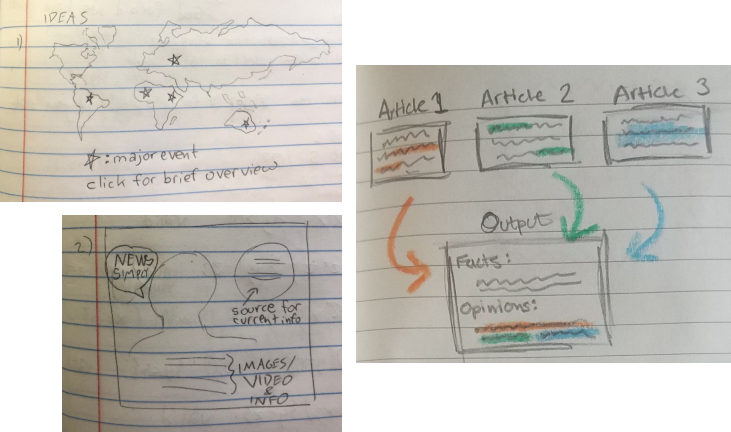 IDEAS
1)
☆: major event
click for brief overview
2)
NEWS
source for
current info
IMAGES/
VIDEO
&
INFO
Article 1
Article 2
Article 3
Output
Facts:
Opinions: